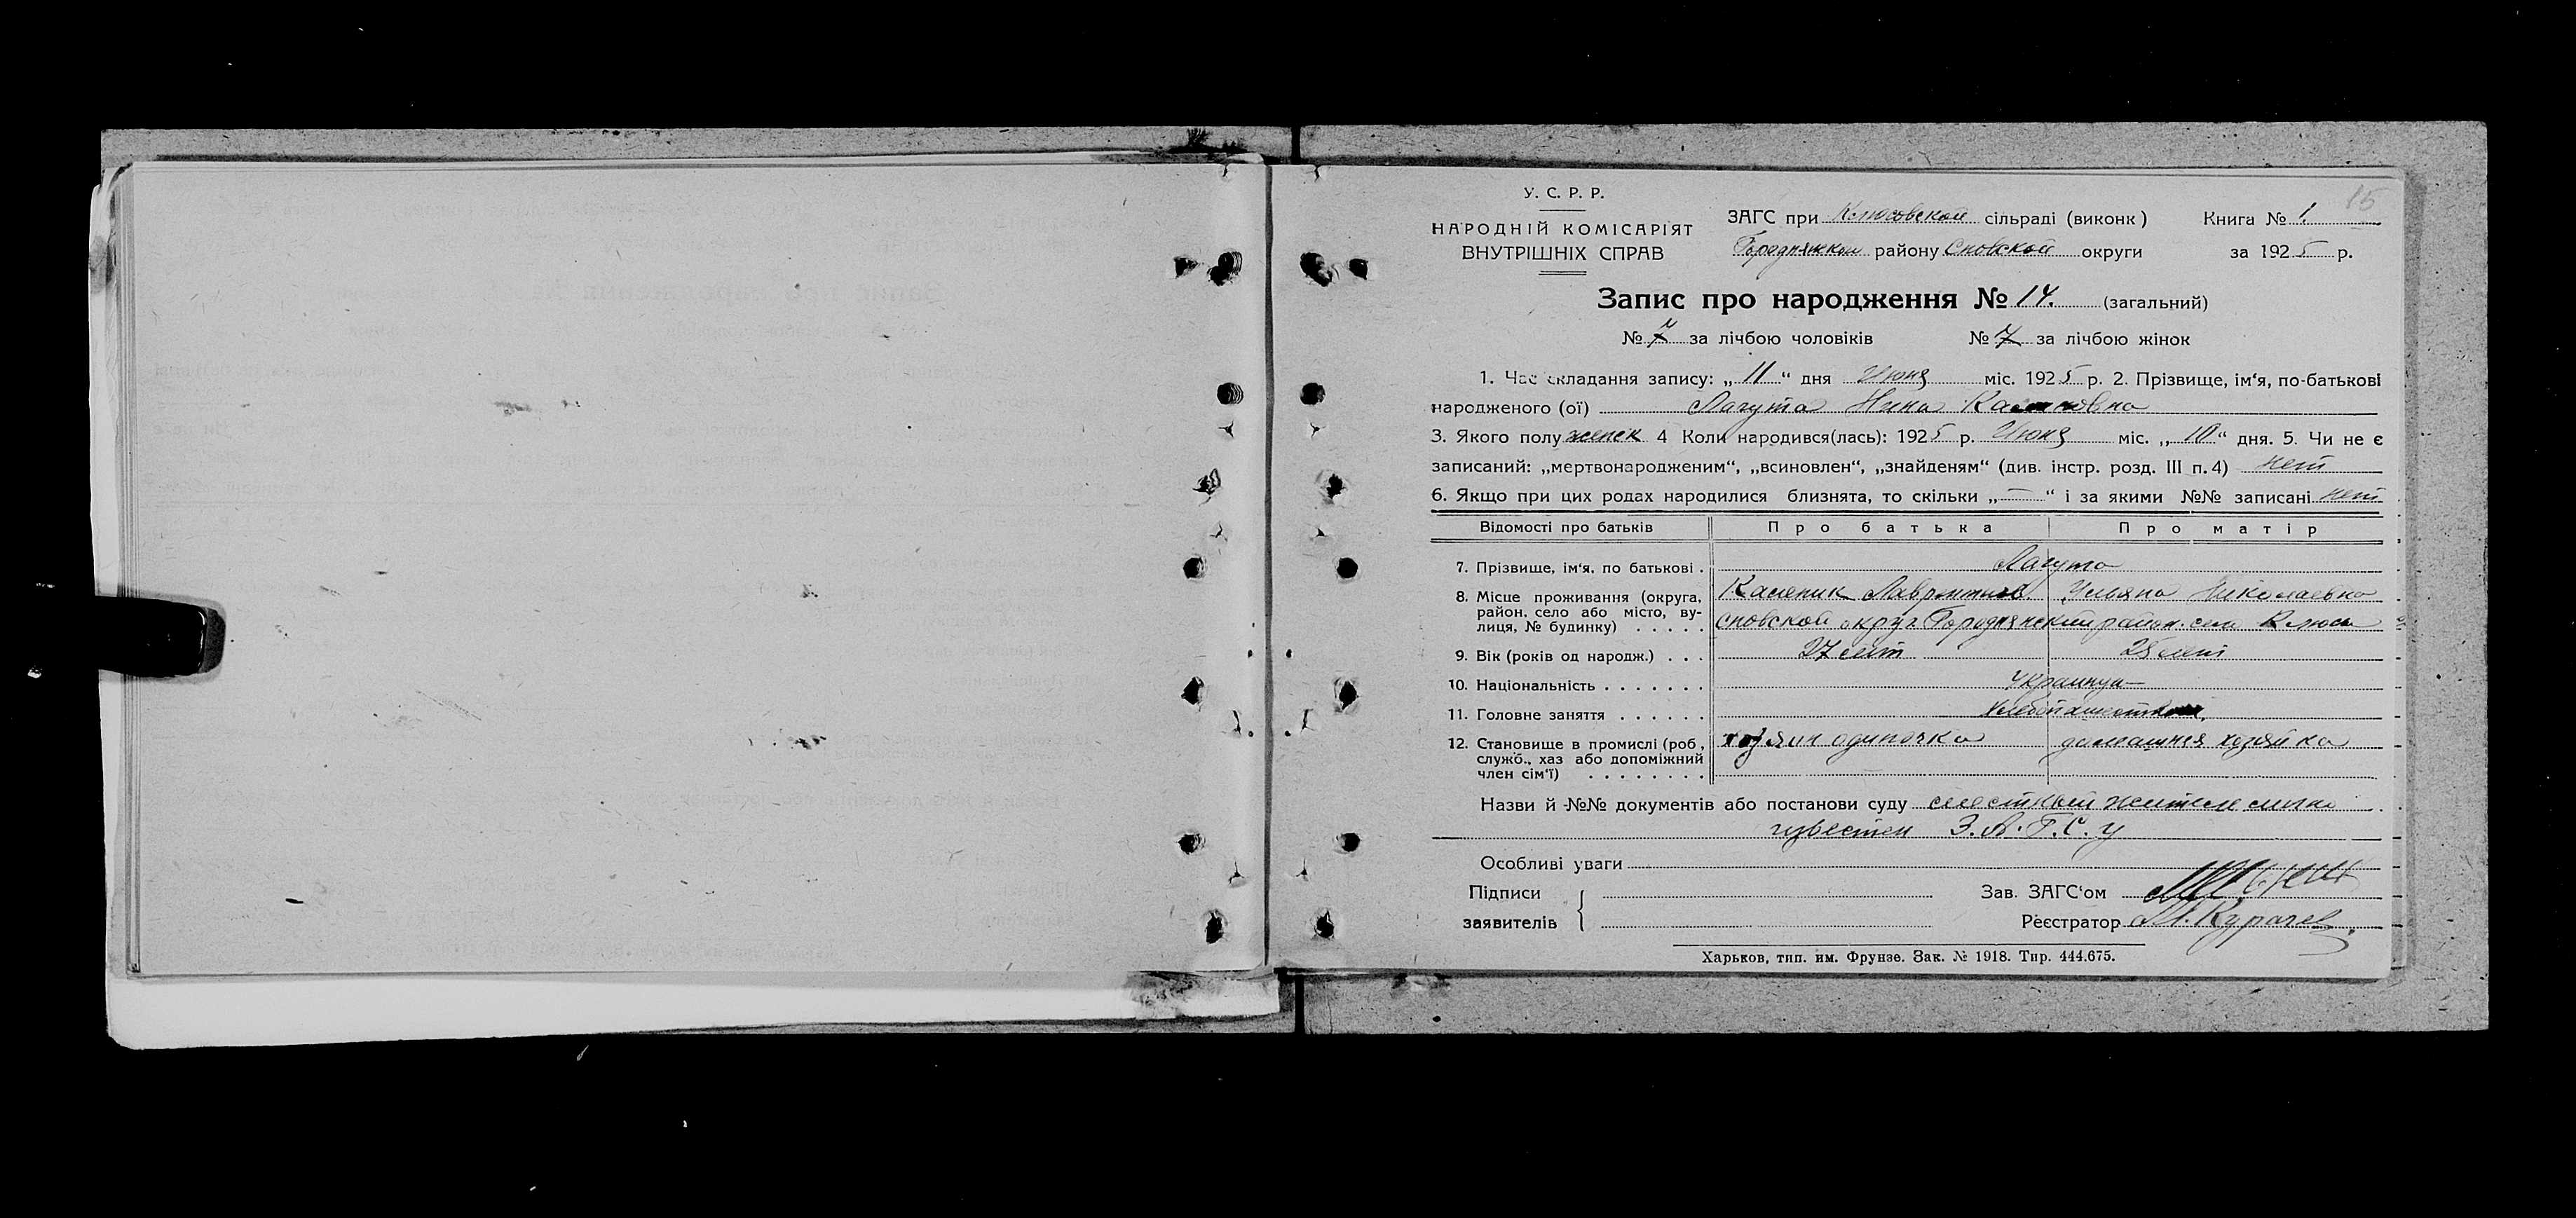 15
У. С. Р. Р.
НАРОДНІЙ КОМІСАРІЯТ
ВНУТРІШНІХ СПРАВ
ЗАГС при Клюсовской сільраді (виконк) Книга № 1.
району Сновской округи за 1925 р.
Запис про народження № 14. (загальний)
№ 7 за лічбою чоловіків № 7 за лічбою жінок
1. Час складання запису: „11“ дня Июня міс. 1925 р. 2. Прізвище, ім‘я, по-батькові
народженого (ої) Лагута Нина
3. Якого полу женск 4 Коли народився(лась): 1925 р. Июня міс. „10“ дня. 5. Чи не є
записаний: „мертвонародженим“, „всиновлен“, „знайденям“ (див. інстр. розд. III п. 4) нет
6. Якщо при цих родах народилися близнята, то скільки „—“ і за якими №№ записані нет
Відомості про батьків Про батька Про матір
7. Прізвище, ім‘я, по батькові . Лагута
8. Місце проживання (округа, район, село або місто, вулиця, № будинку) . . . . .
Ульяна Николаевна
Сновской округ Городнянский район. село Клюсы
9. Вік (років од народж.) . . . 27 лет 25 лет
10. Національність . . . . . . . Украинцы
11. Головне заняття . . . . . .
12. Становище в промислі (роб, служб., хаз або допоміжний член сім‘ї) . . . . . . . . хозяин одиночка домашняя хозяйка
Назви й №№ документів або постанови суду местный житель лично
известен З.А.Г.С.у
Особливі уваги
Підписи
заявителів
Зав. ЗАГС‘ом
Реєстратор
Харьков, тип. им. Фрунзе. Зак. № 1918. Тир. 444.675.